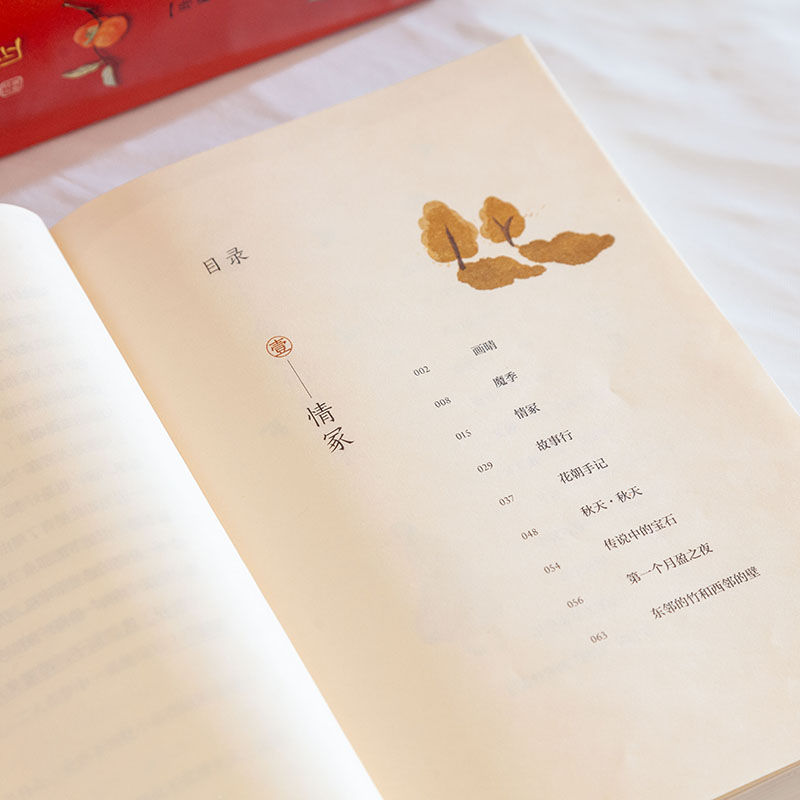 目录
壹
情冢
002 画晴
008 魔季
015 情冢
029 故事行
037 花朝手记
048 秋天·秋天
054 传说中的宝石
056 第一个月盈之夜
063 东邻的竹和西邻的壁